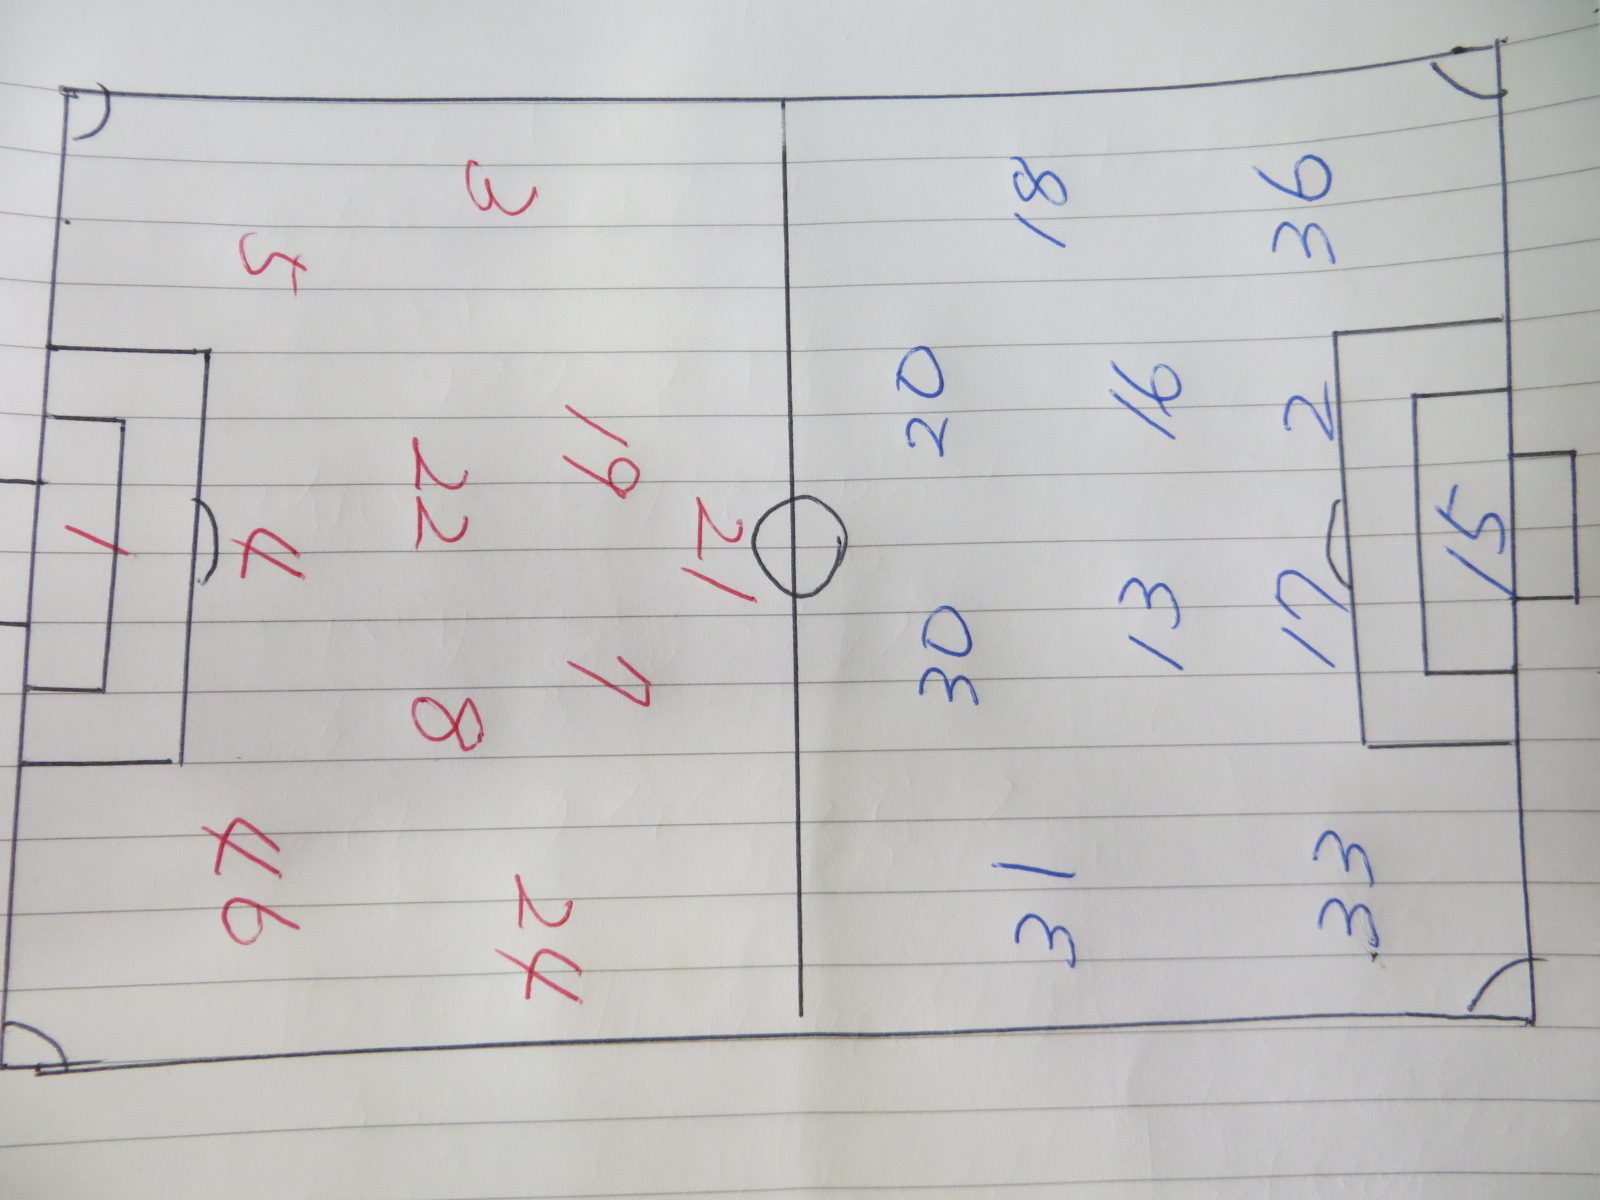 3
5
19
22
21
1
4
7
8
46
24
18
36
20
16
2
15
30
13
17
31
33